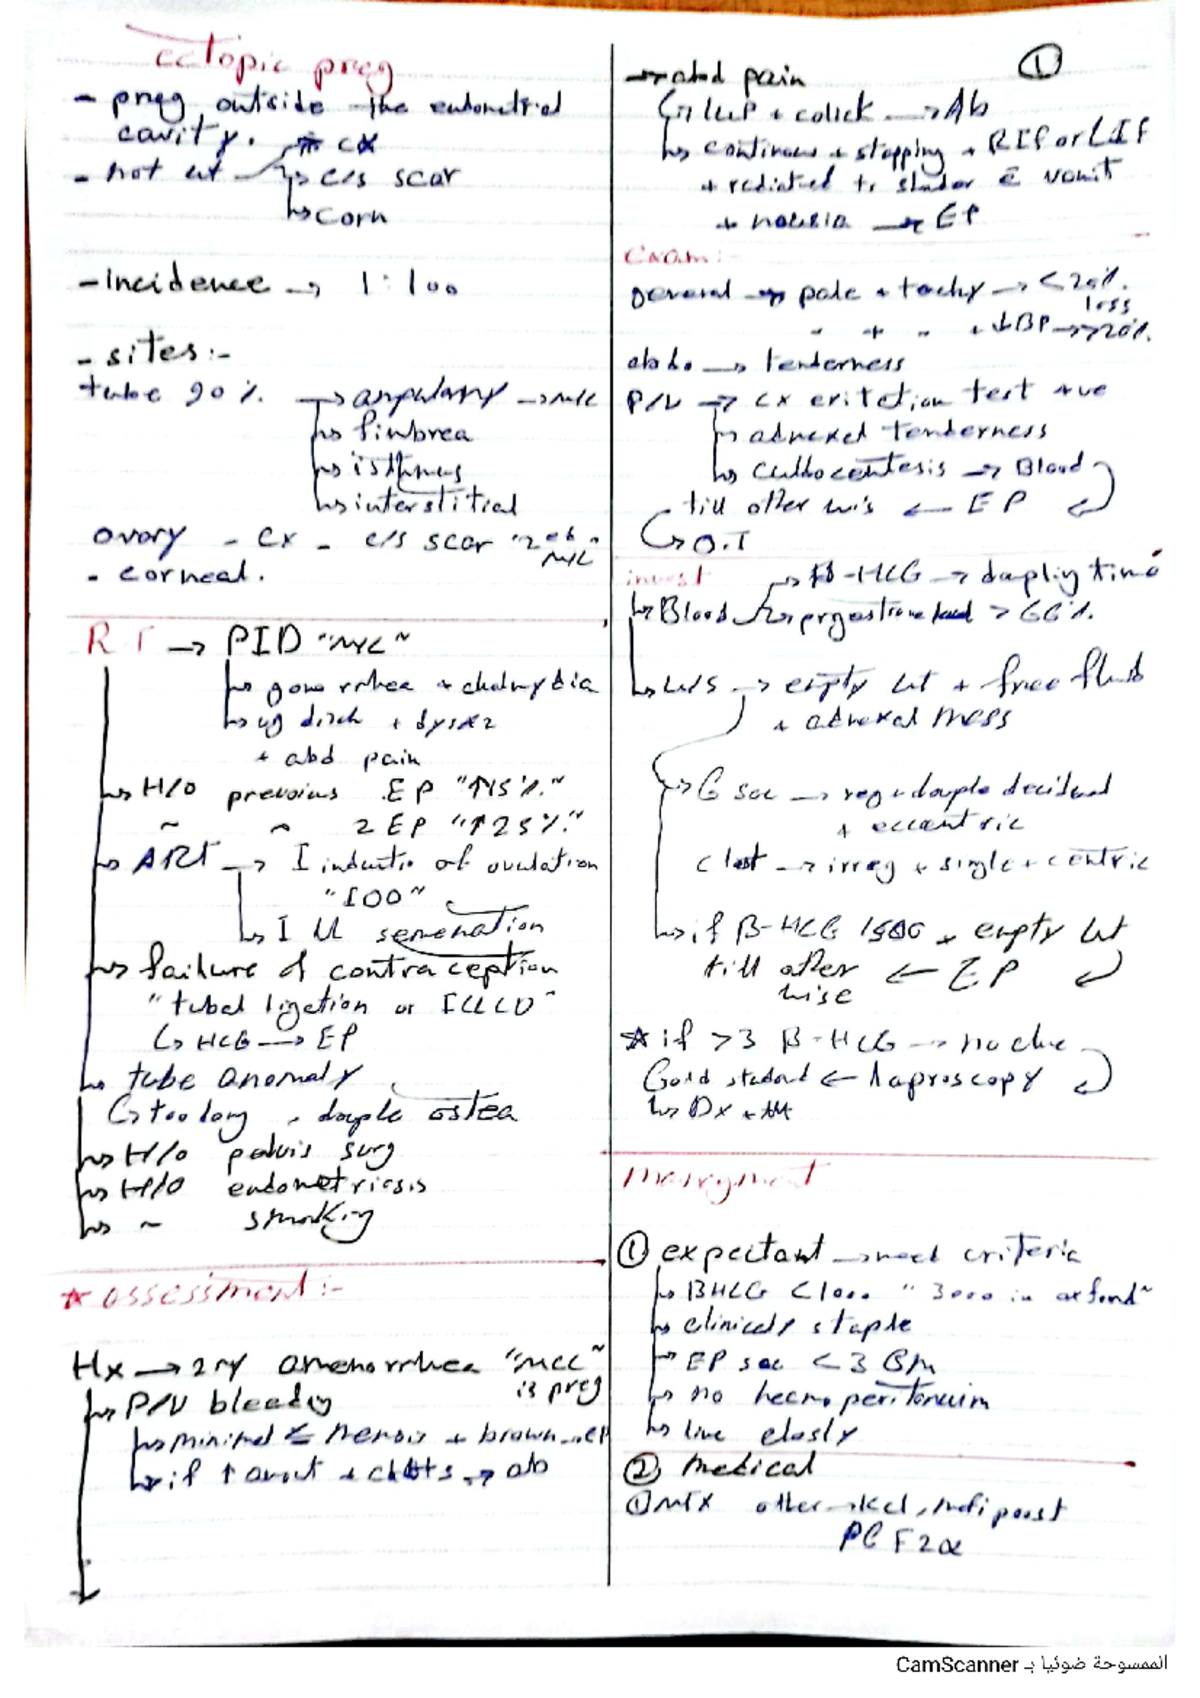 ectopic preg
- preg outside the endometrial
cavity.
- not ut → cx
↳ c/s scar
↳ corn
- incidence → 1:100
- sites:-
tube 90% → ampulary → M/C
↳ fimbrea
↳ isthmus
↳ interstitial
ovary - cx - c/s scar "2
M/C
- corneal.
R.F → PID "M/C"
↳ gonorrhea + chalmydia
↳ vg disch + dysx2
+ abd pain
↳ H/o prevoius EP "↑15%."
~ ~ 2 EP "↑25%."
↳ ART → I inductio of ovulation
"IOO"
↳ I U semenation
↳ failure of contraception
"tubal ligation or IUCD"
↳ HCG → EP
↳ tube anomaly
↳ too long, douple ostea
↳ H/o pelvis surg
↳ H/O endometriosis
↳ ~ smoking
* assessment:-
Hx → 2ry amenorrhea "MCC"
is preg
↳ P/V bleeding
↳ minimal ≤ mensis + brown → EP
↳ if ↑ amout + clots → ab
①
→ abd pain
↳ LUP + colick → Ab
↳ continous + stapping + RIF or LIF
+ rediated to sholder c̄ vomit
+ nousia → EP
Exam:-
general → pale + tachy → <20%.
loss
" + " + ↓BP → >20%.
abdo. → tenderness
P/V → cx exitetion test +ve
↳ adnexel tenderness
↳ culdocentesis → Blood
till other wis ← EP
↳ O.T
invest
↳ Blood → B-HCG → doupling time
↳ prgestrone level > 66%.
↳ U/S → empty ut + free fluid
+ adnexal mess
↳ G sac → reg + douple decidual
+ eccentric
clot → irreg + single + centric
↳ if B-HCG 1500 + empty ut
till other ← EP
wise
☆ if >3 B-HCG → no clue
Gold standard ← laproscopy
↳ Dx + ttt
Manegment
① expectant → meet criteria
↳ BHCG <1000 "3000 in oxford"
↳ clinicaly staple
↳ EP sac <3 cm
↳ no hecmo peritoneum
↳ live closly
② Medical
① MTX other → kcl,
PG F2α
الممسوحة ضوئيا بـ CamScanner